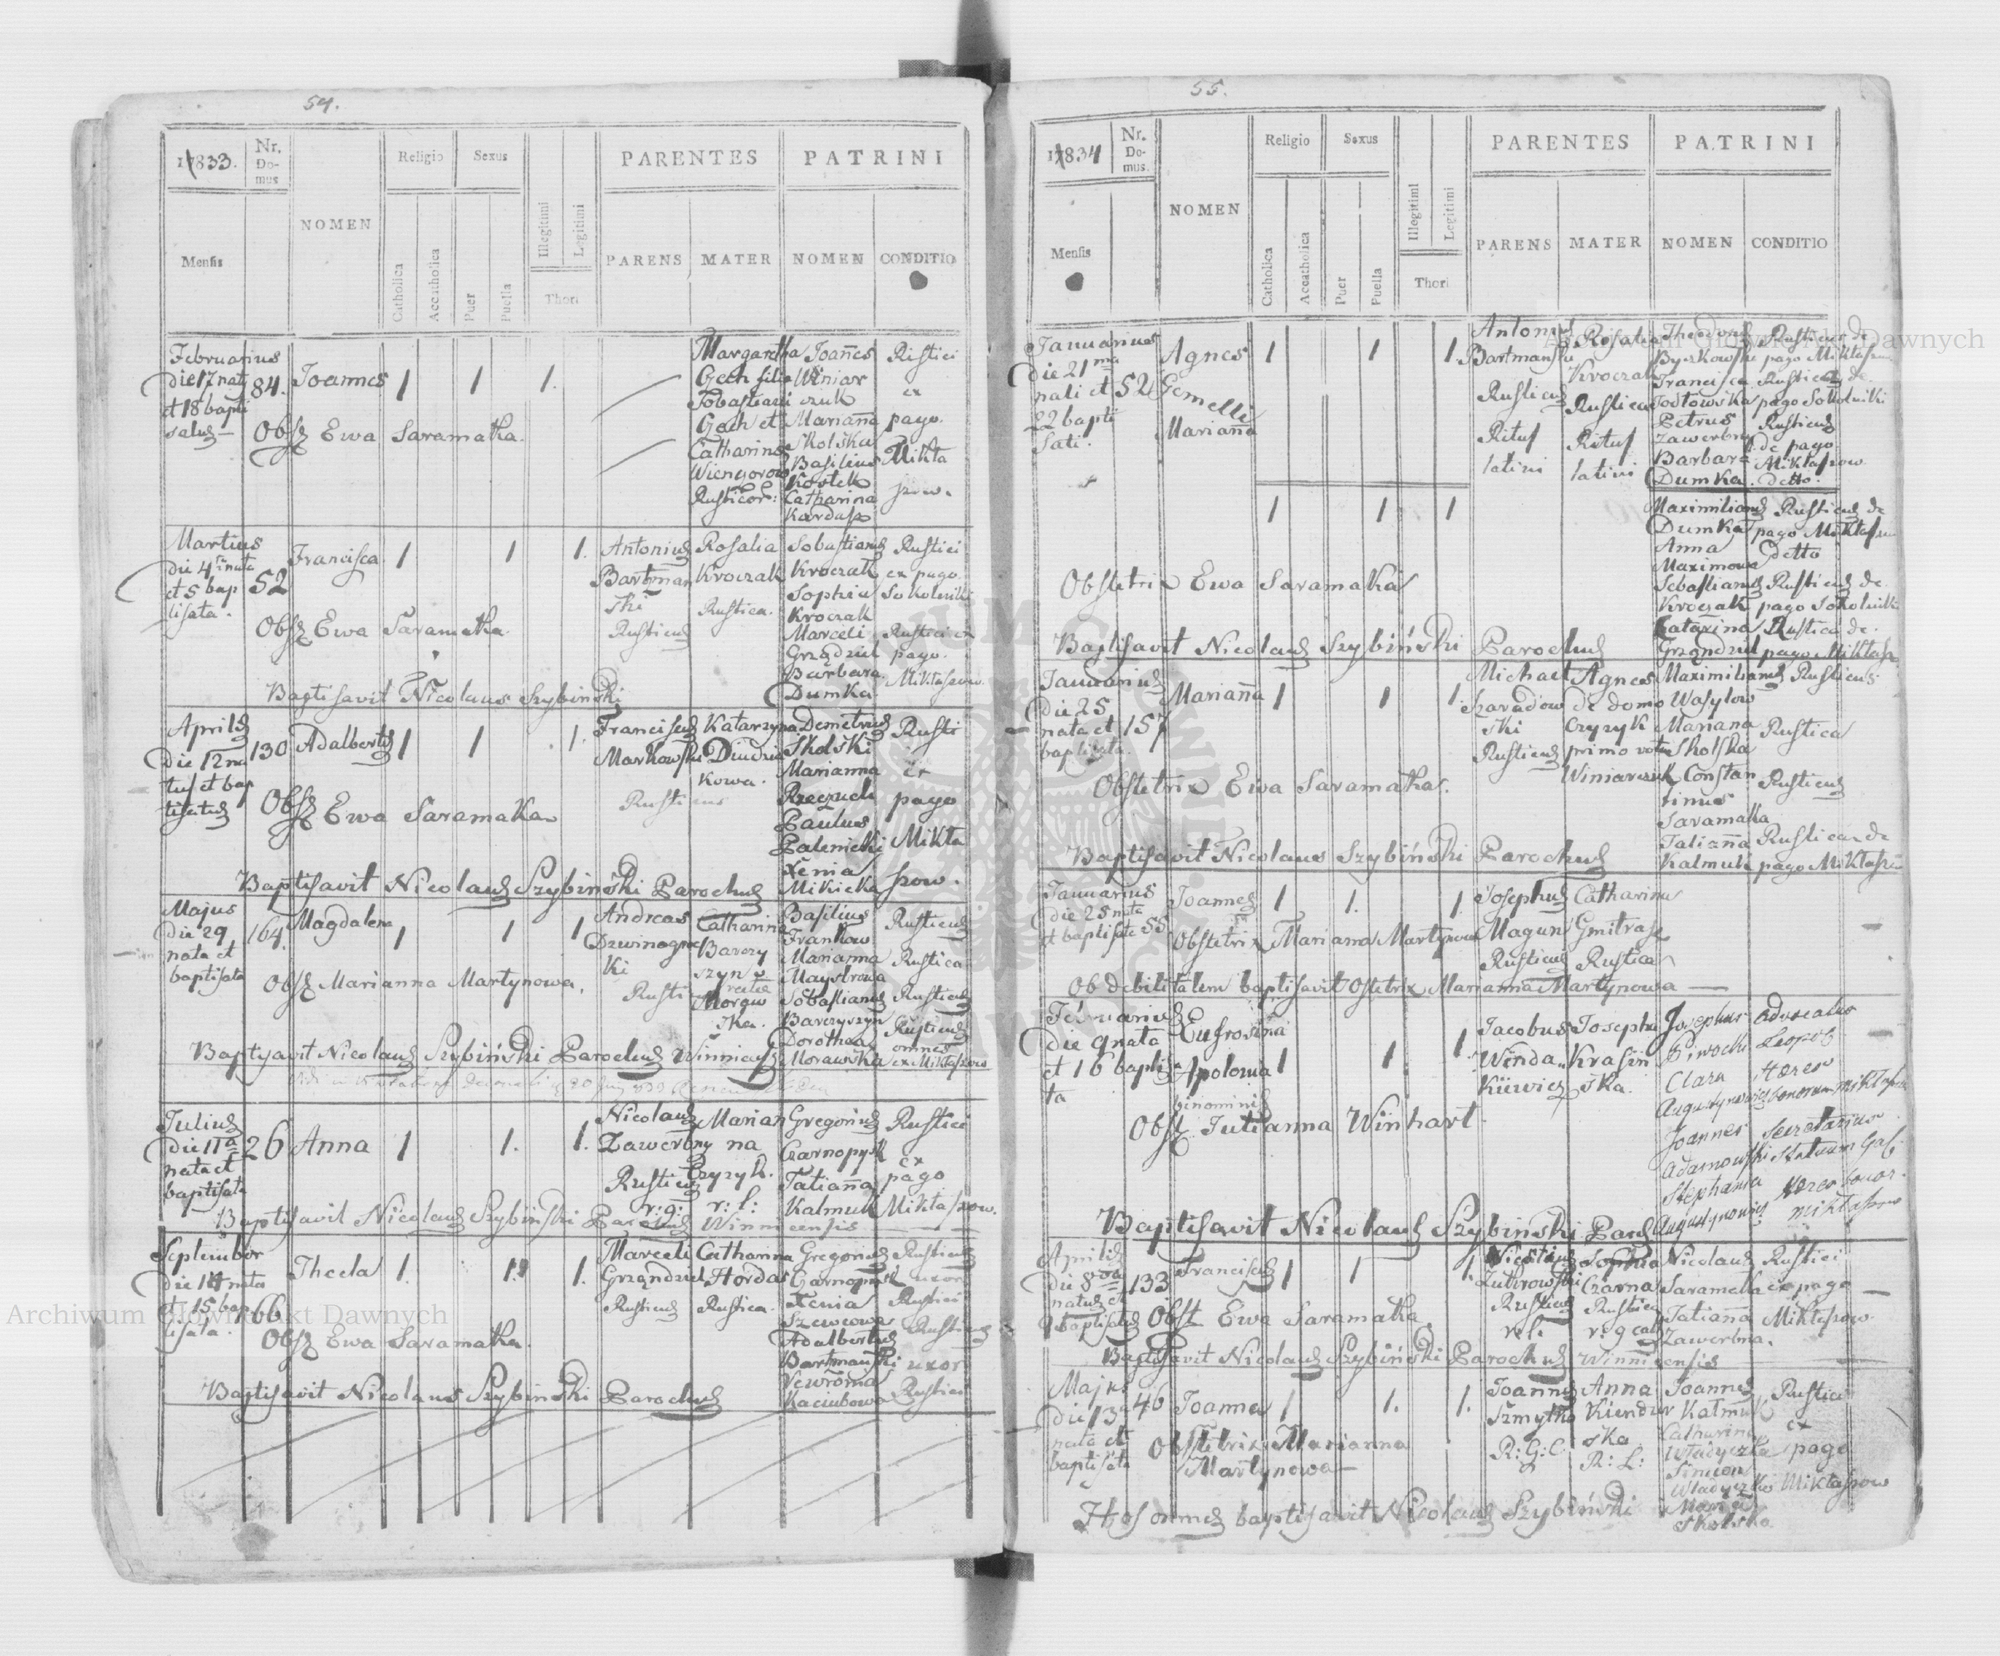 54.
17833.
Nr. Domus
NOMEN
Religio
Sexus
PARENTES
PATRINI
Mensis
Catholica
Accatholica
Puer
Puella
Illegitimi
Legitimi
Thori
PARENS
MATER
NOMEN
CONDITIO
Februarius
die 17 nat
et 18 bapti
84.
Joannes
1 1 1.
Obst Ewa Saramaka.
Margaretha
Gech filia
Gech et
Catharina
Joannes
Winiar
czuk
Marianna
Skolska
Basilius
Kostek
Catharina
Kardasz
Rustici
ex
pago
Mikta
szow.
Martius
die 4
et 5 bap
tisata.
52
Francisca
1 1 1.
Obst Ewa Saramaka
Antonius
Bartman
ski
Rusticus
Rosalia
Kroczak
Rustica.
Sobastianus
Kroczak
Sophia
Kroczak
Marceli
Grządziel
Barbara
Dumka
Rustici
ex pago
Sokolniki
Rustici ex
pago.
Miktaszow
Baptisavit Nicolaus Szybinski
Aprilis
die 12 na
tus et bap
tisatus
130
Adalbertus
1 1 1.
Obst Ewa Saramaka
Franciscus
Markowski
Rusticus
Katarzyna
kowa.
Demetrius
Skolski
Marianna
Paulus
Palenicki
Xenia
Mikicka
Rusti
ci
ex
pago
Mikta
szow.
Baptisavit Nicolaus Szybiński Parochus
Majus
die 29
nata et
baptisata
164.
Magdalena
1 1 1
Obst Marianna Martynowa.
Andreas
Dzwinogrec
ki
Rusti
Catharina
Barczy
szyn
Basilius
Frankow
Marianna
Maystrowa
Sobastianus
Barczyszyn
Dorothea
Morawska
Rusticus
Rustica
Rusticus
omnes
ex Miktaszow
Baptisavit Nicolaus Szybiński Parochus Winnicens
Julius
die 11a
nata et
baptisata
26
Anna
1 1. 1.
Nicolaus
Zawerbny
Rusticus
r: g:
Marian
na
Czyzyk.
r: l:
Gregorius
Czarnopysk
Tatianna
Kalmuk
Rustici
ex
pago
Miktaszow.
Baptisavit Nicolaus Szybiński Parochus Winnicensis
September
die 14 nata
et 15 bap
tisata.
66
Thecla
1. 1. 1.
Obst Ewa Saramaka.
Marceli
Grządziel
Rusticus
Catharina
Hordas
Rustica.
Gregorius
Xenia
Szewcowa
Adalbertus
Bartmański
Kaciubowa
Rusticus
uxor
Rustici
Rusticus
uxor
Rustici
Baptisavit Nicolaus Szybinski Parochus
55.
17834
Nr. Domus.
NOMEN
Religio
Sexus
PARENTES
PATRINI
Mensis
Catholica
Accatholica
Puer
Puella
Illegitimi
Legitimi
Thori
PARENS
MATER
NOMEN
CONDITIO
Januarius
die 21ma
nati et
22 bapti
sati.
52
Agnes
Gemelli
Marianna
1 1 1.
Antonius
Bartmański
Rusticus
Ritus
latini
Rosalia
Kroczak
Rustica
Ritus
latini
Theodorus
Byczkowski
Francisca
Petrus
Zawerbny
Barbara
Dumka.
Rusticus de
pago Miktaszow
Rustica de
pago Sokolniki
Rusticus
de pago
Miktaszow
detto.
1 1 1
Maximilianus
Dumka
Anna
Maximowa
Sebastianus
Kroczak
Catarina
Grządziel
Rusticus de
pago Miktaszow
detto
Rusticus de
pago Sokolniki
Rustica de
pago Miktasz
Obstetrix Ewa Saramaka
Baptisavit Nicolaus Szybiński Parochus
Januarius
die 25
nata et
baptisata.
157
Marianna
1 1 1.
Michael
Szaradow
ski
Rusticus
Agnes
de domo
Czyzyk
primo voto
Winiarczuk
Maximilianus
Wasylow
Mariana
Skolska
Constan
tinus
Saramaka
Tatianna
Kalmuk
Rusticus
Rustica
Rusticus
Rustica de
pago Miktasz
Obstetrix Ewa Saramaka.
Baptisavit Nicolaus Szybiński Parochus
Januarius
die 25 nata
et baptisata
55
Joannes
1 1. 1.
Josephus
Magun
Rusticus
Catharina
Gmitrasz
Rustica
Obstetrix Mariana Martynowa
Ob debilitatem baptisavit Ostetrix Marianna Martynowa
Februarius
die 9 nata
et 16 baptisa
ta
Eufrosina
Apolonia
binominis
1 1 1.
Jacobus
Winda
kiewicz
Josepha
Krasin
ska.
Josephus
Piwocki
Clara
Augustynowicz
Joannes
Adamowski
Stephania
Augustynowicz
Advocatus
Leopol:
Heres
bonorum Miktaszow
Secretarius
Statuum Gal:
Heres bonor.
Miktaszow
Obst Julianna Winhart
Baptisavit Nicolaus Szybiński Paroch
Aprilis
die 8va
natus et
9 baptisatus
133
Franciscus
1 1 1.
Rusticus
r. l.
Sophia
Czarna
Rustica
r: g cat
Nicolaus
Saramaka
Tatianna
Zawerbna.
Rustici
ex pago
Miktaszow
Obst Ewa Saramaka.
Baptisavit Nicolaus Szybiński Parochus Winnicensis
Majus
die 13
nata et
baptisata
46
Joanna
1 1. 1.
Joannes
Szmytko
R: G: C:
Anna
Kiendzior
ska
R: L:
Joannes
Kalmuk
Catharina
Wladyczka
Simeon
Wladyczko
Skolska
Rustici
ex
pago
Miktaszow
Obstetrix Marianna
Martynowa
Hos omnes baptisavit Nicolaus Szybiński
Archiwum Główne Akt Dawnych
Archiwum Główne Akt Dawnych